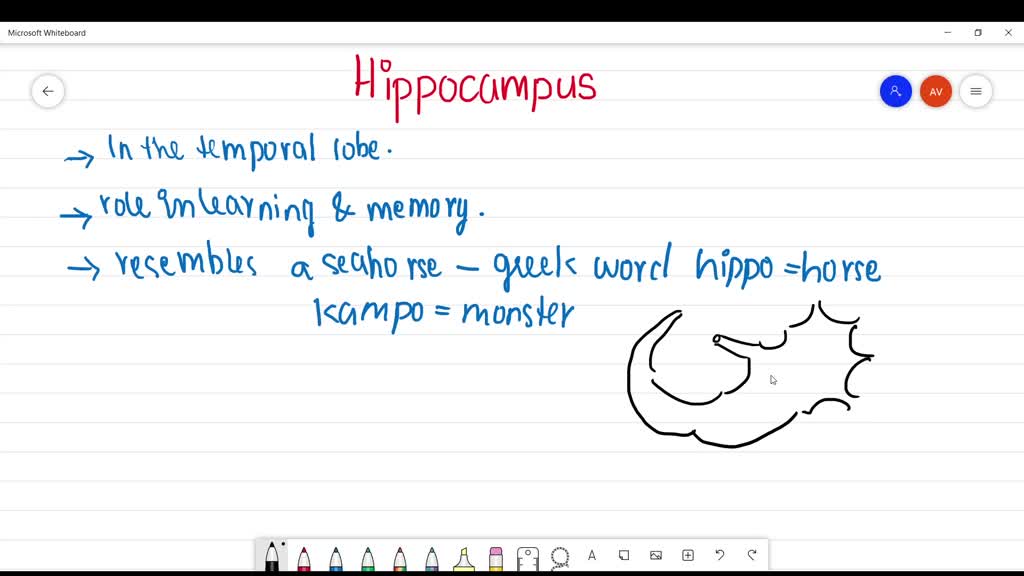 Microsoft Whiteboard
Hippocampus
AV
→ In the temporal lobe.
→ role in learning & memory.
→ resembles a seahorse – greek word hippo = horse
kampo = monster
A